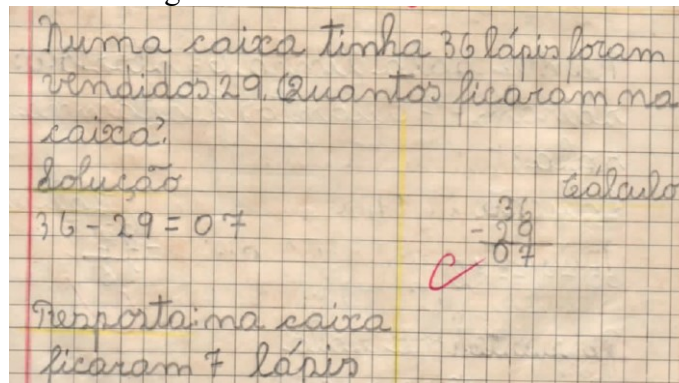 Numa caixa tinha 36 lápis foram
vendidos 29. Quantos ficaram na
caixa?
Solução
Cálculo
36 - 29 = 07
36
- 29
07
C
Resposta: na caixa
ficaram 7 lápis